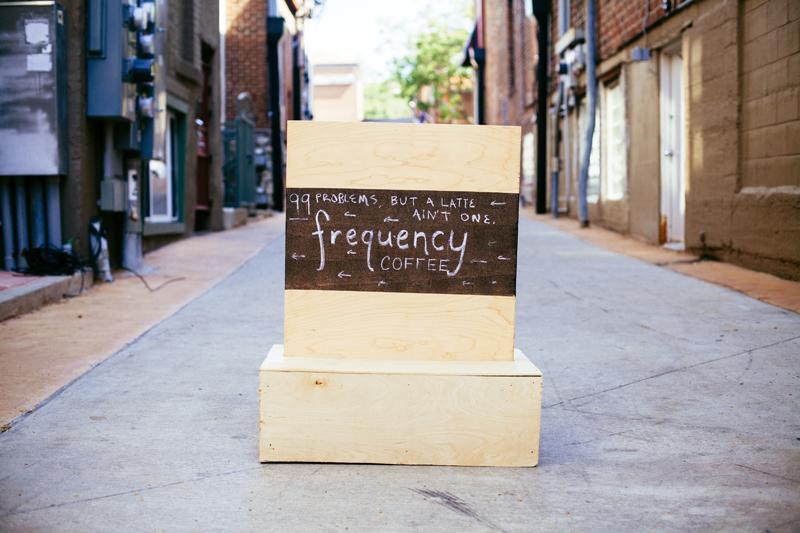 99 PROBLEMS, BUT A LATTE
AIN'T ONE.
frequency
COFFEE